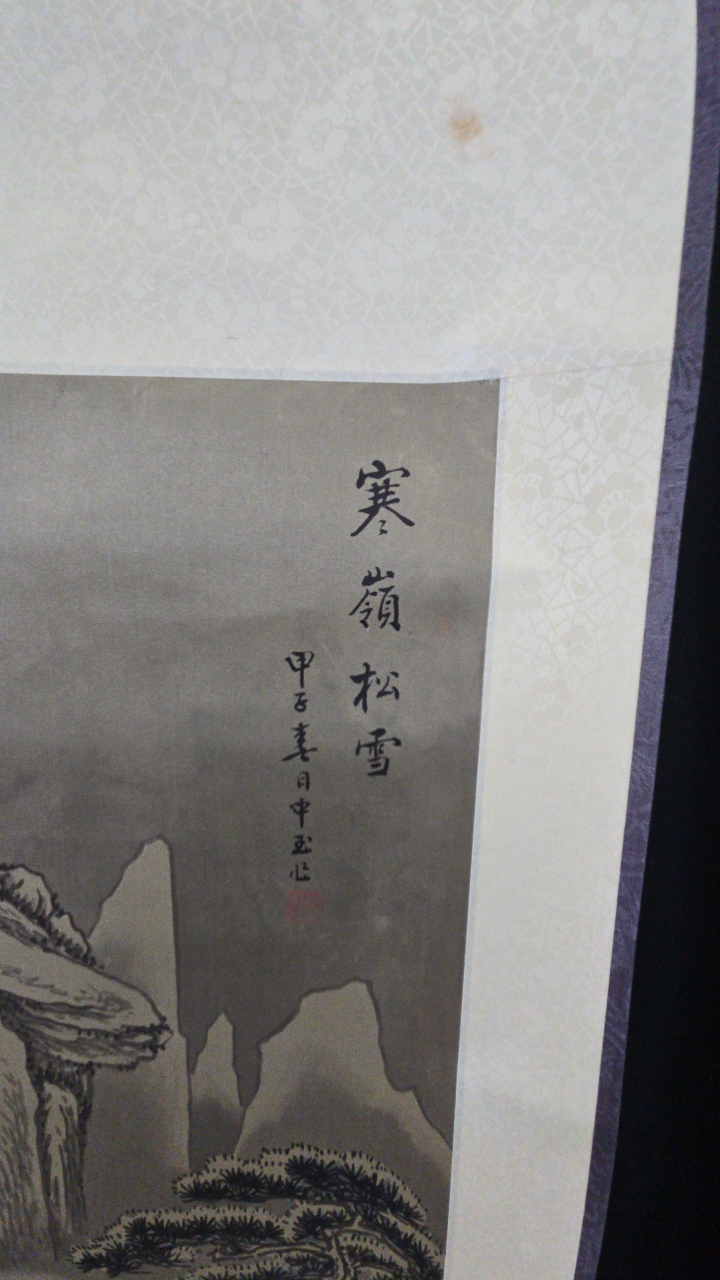 寒嶺松雪
甲子春日中玉作